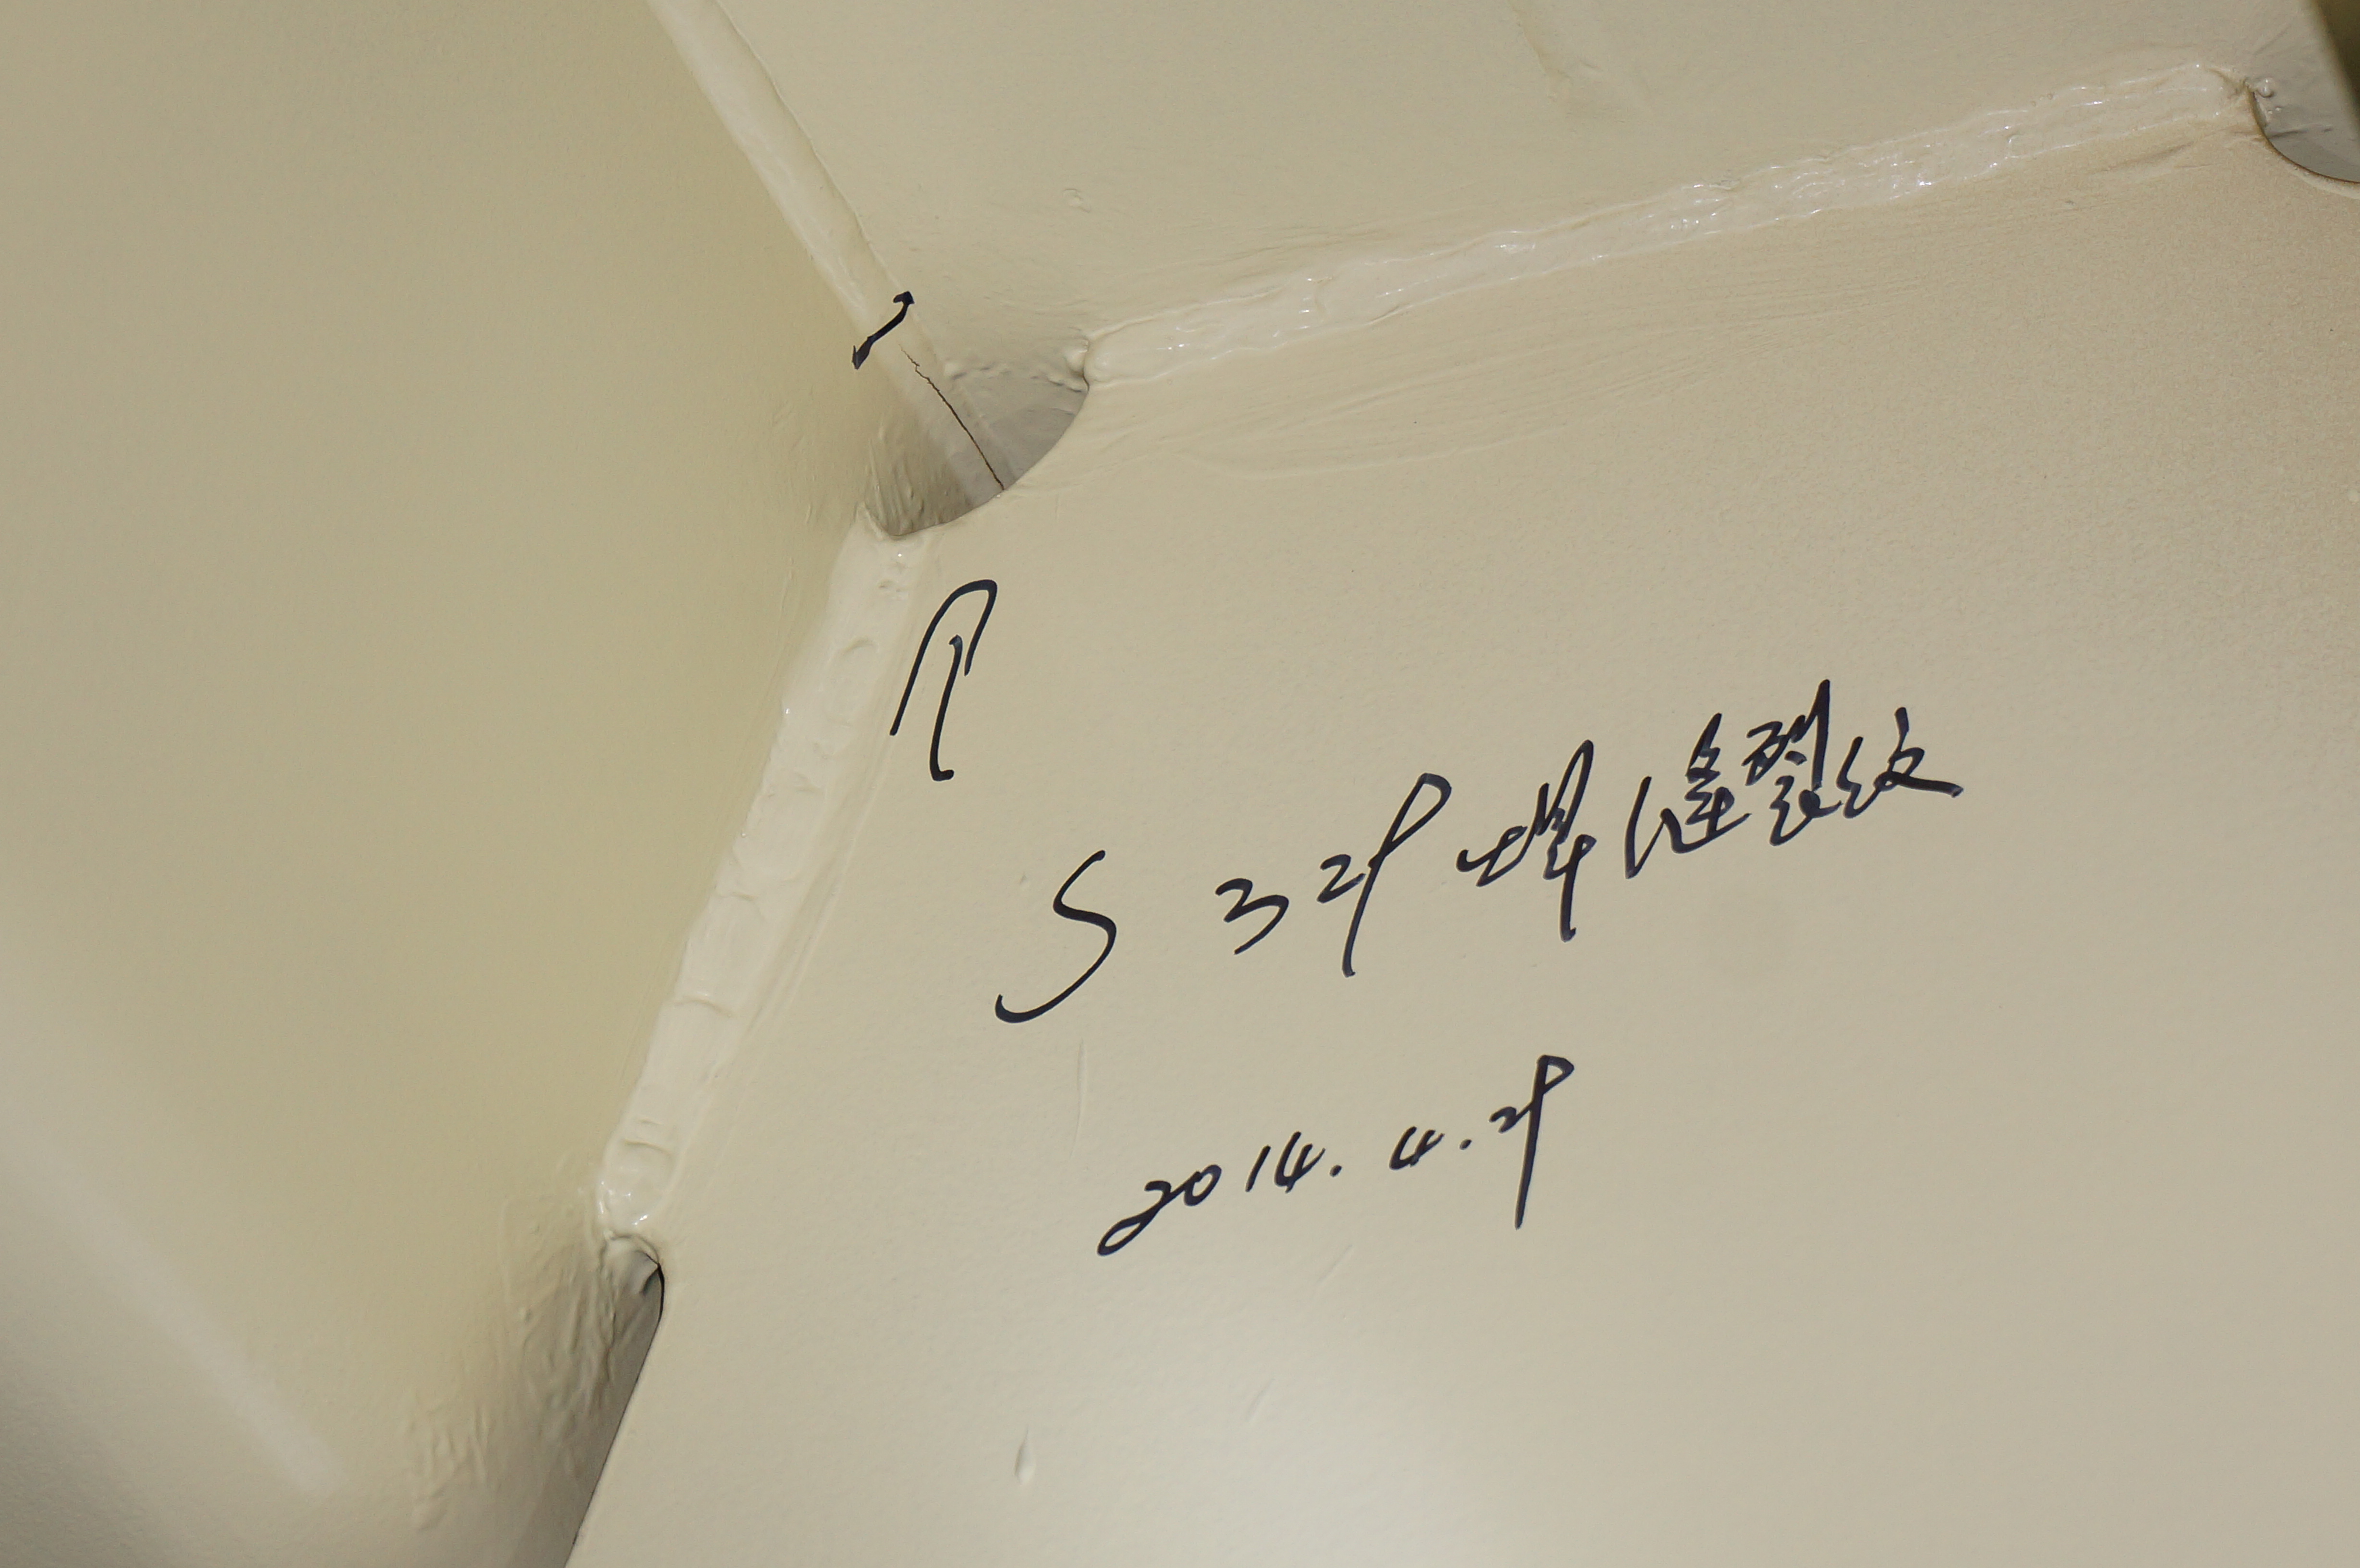 S 329 焊缝裂纹
2014.4.29